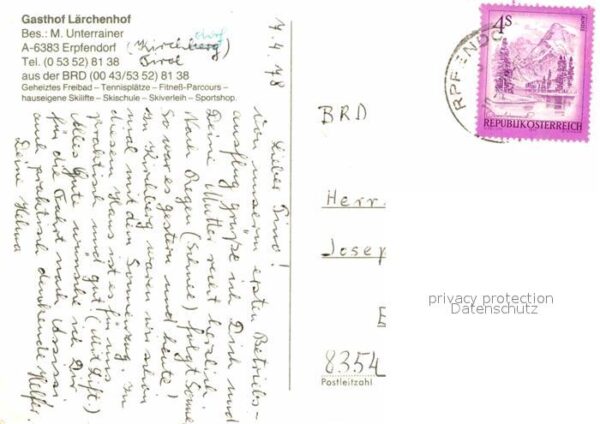 Gasthof Lärchenhof
Bes.: M. Unterrainer
A-6383 Erpfendorf (Kirchdorf)
Tel. (0 53 52) 81 38 Tirol
aus der BRD (00 43/53 52) 81 38
Geheiztes Freibad – Tennisplätze – Fitneß-Parcours –
hauseigene Skilifte – Skischule – Skiverleih – Sportshop.
7.4.78
Lieber Tino!
Von unserem ersten Betriebs-
ausflug grüße ich Dich und
Deine Mutter recht herzlich.
Nach Regen (Schnee) folgt Sonne
So war es gestern und heute!
In Kirchberg waren wir schon
mal mit dem Sonnenzug. In
diesem Haus ist es für uns
praktisch und gut! (Mit Lift.)
Alles Gute wünsche ich Dir
für die Fahrt nach Assisi.
auch praktisch denkende Helfer.
Deine Helma
4s
AHORN
REPUBLIK ÖSTERREICH
RPFENDO
BRD
Herr
Josep
E
8354
Postleitzahl
privacy protection
Datenschutz